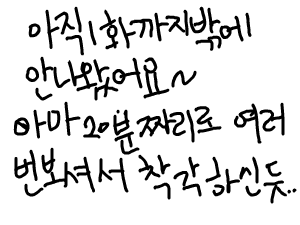 아직 1화까지밖에
안나왔어요~
아마 20분짜리로 여러
번보셔서 착각하신듯..